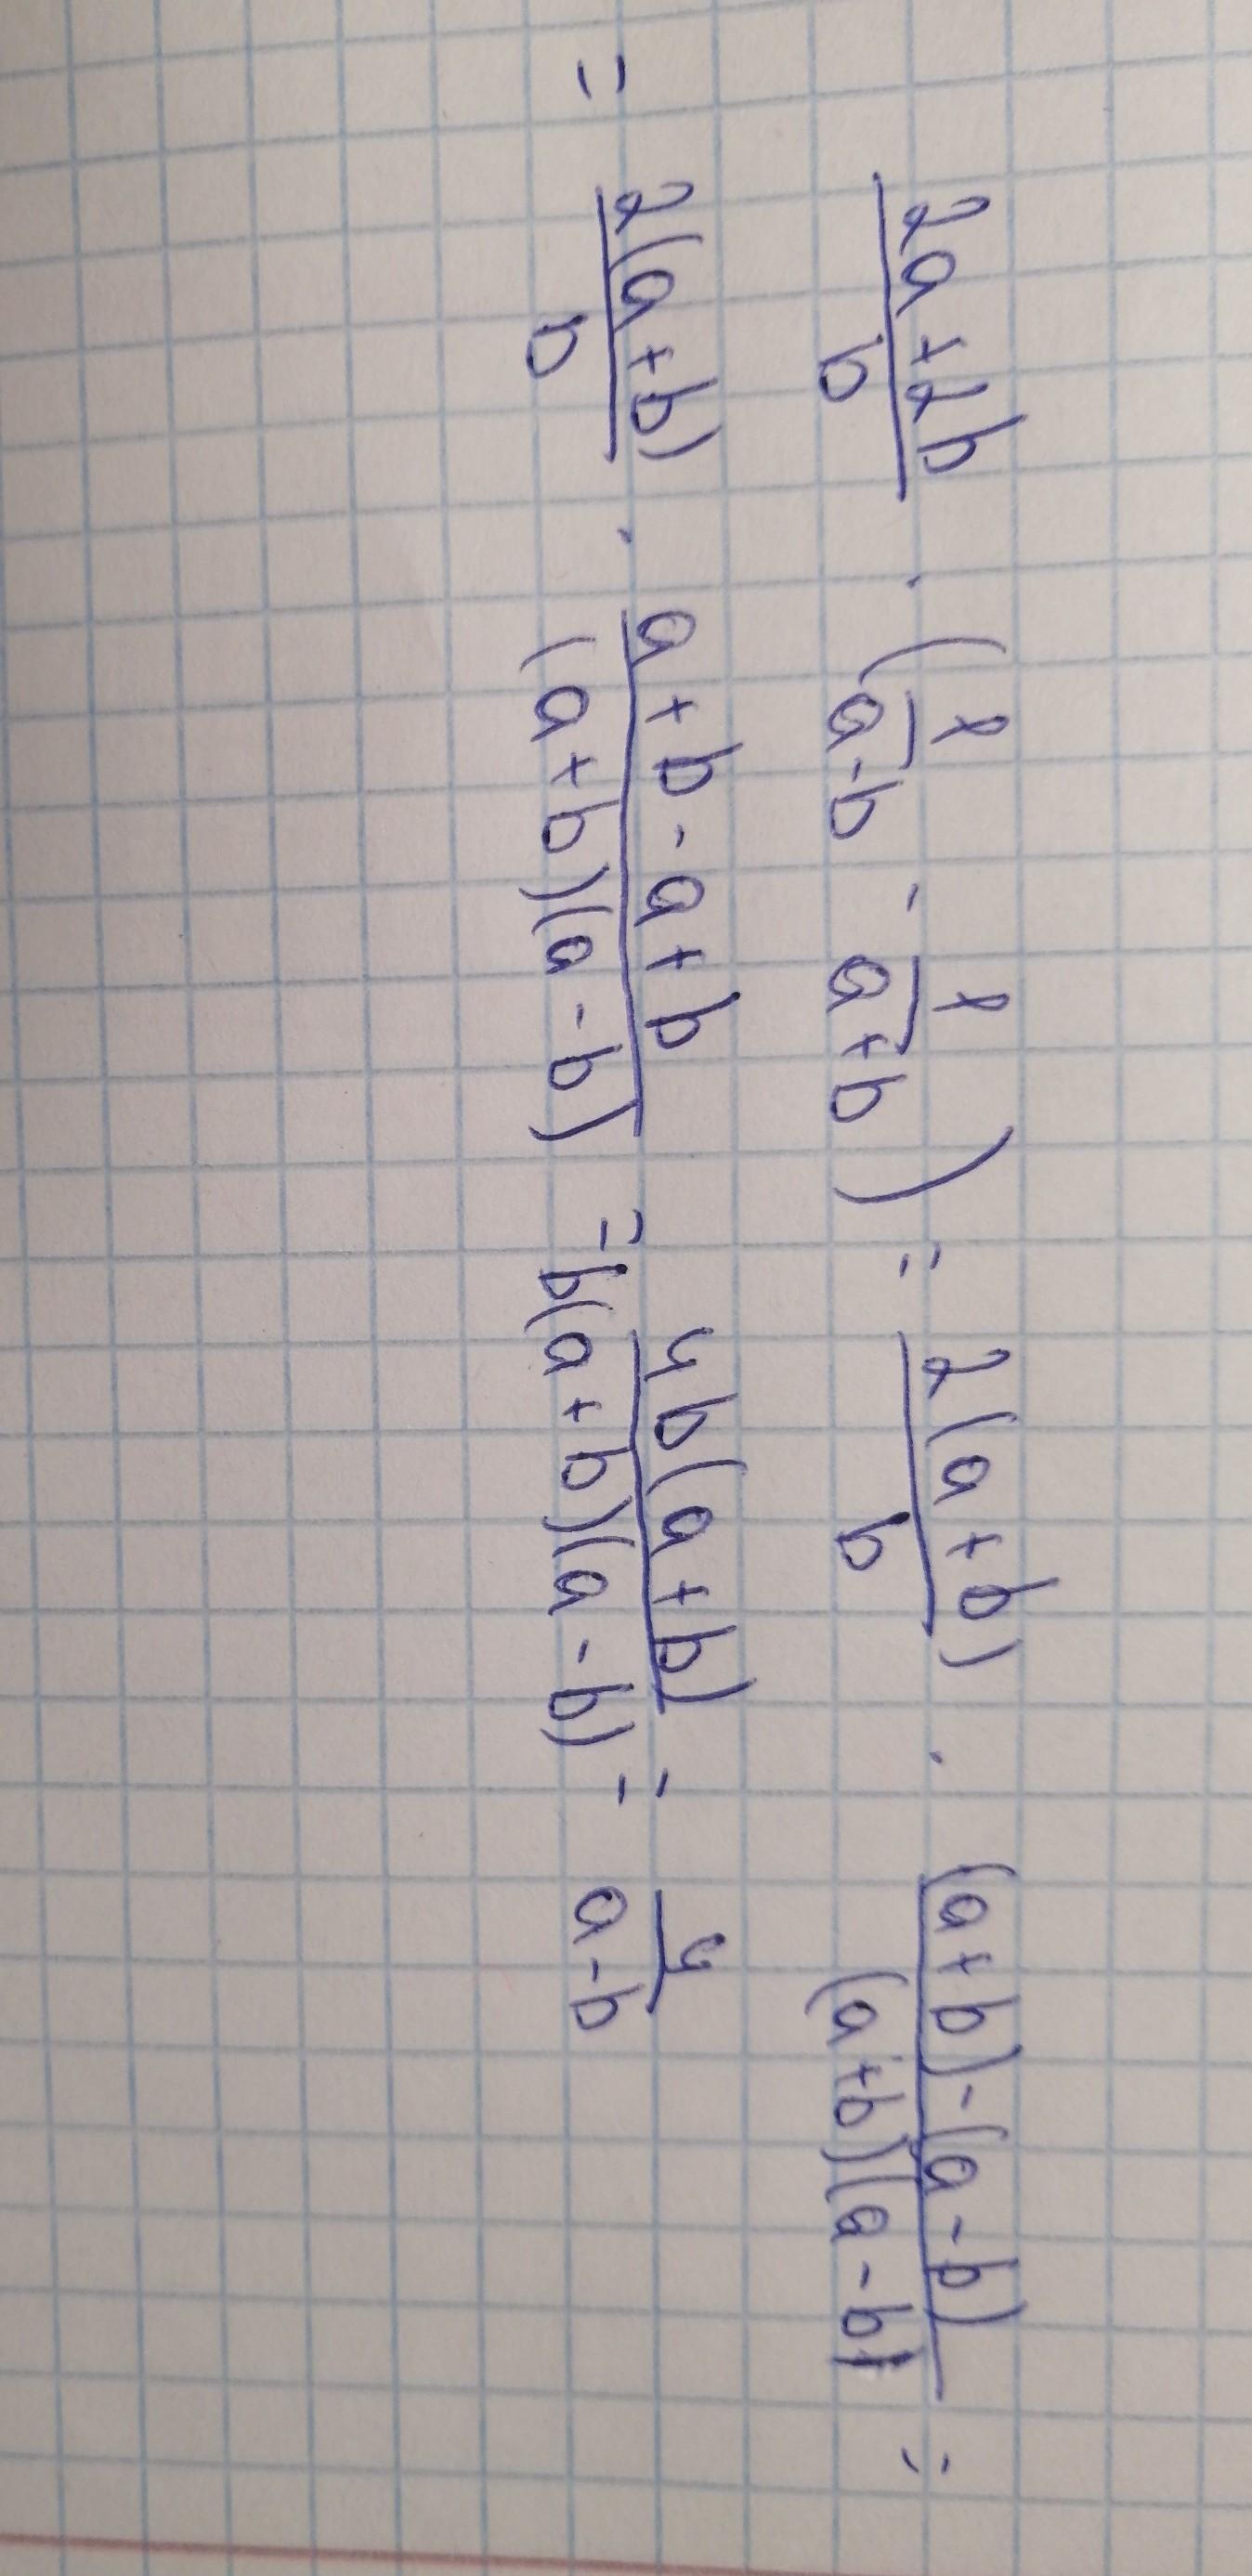 (2a+2b)/b · (1/(a-b) - 1/(a+b)) = 2(a+b)/b · ((a+b)-(a-b))/((a+b)(a-b)) =
= 2(a+b)/b · (a+b-a+b)/((a+b)(a-b)) = 4b(a+b)/(b(a+b)(a-b)) = 4/(a-b)